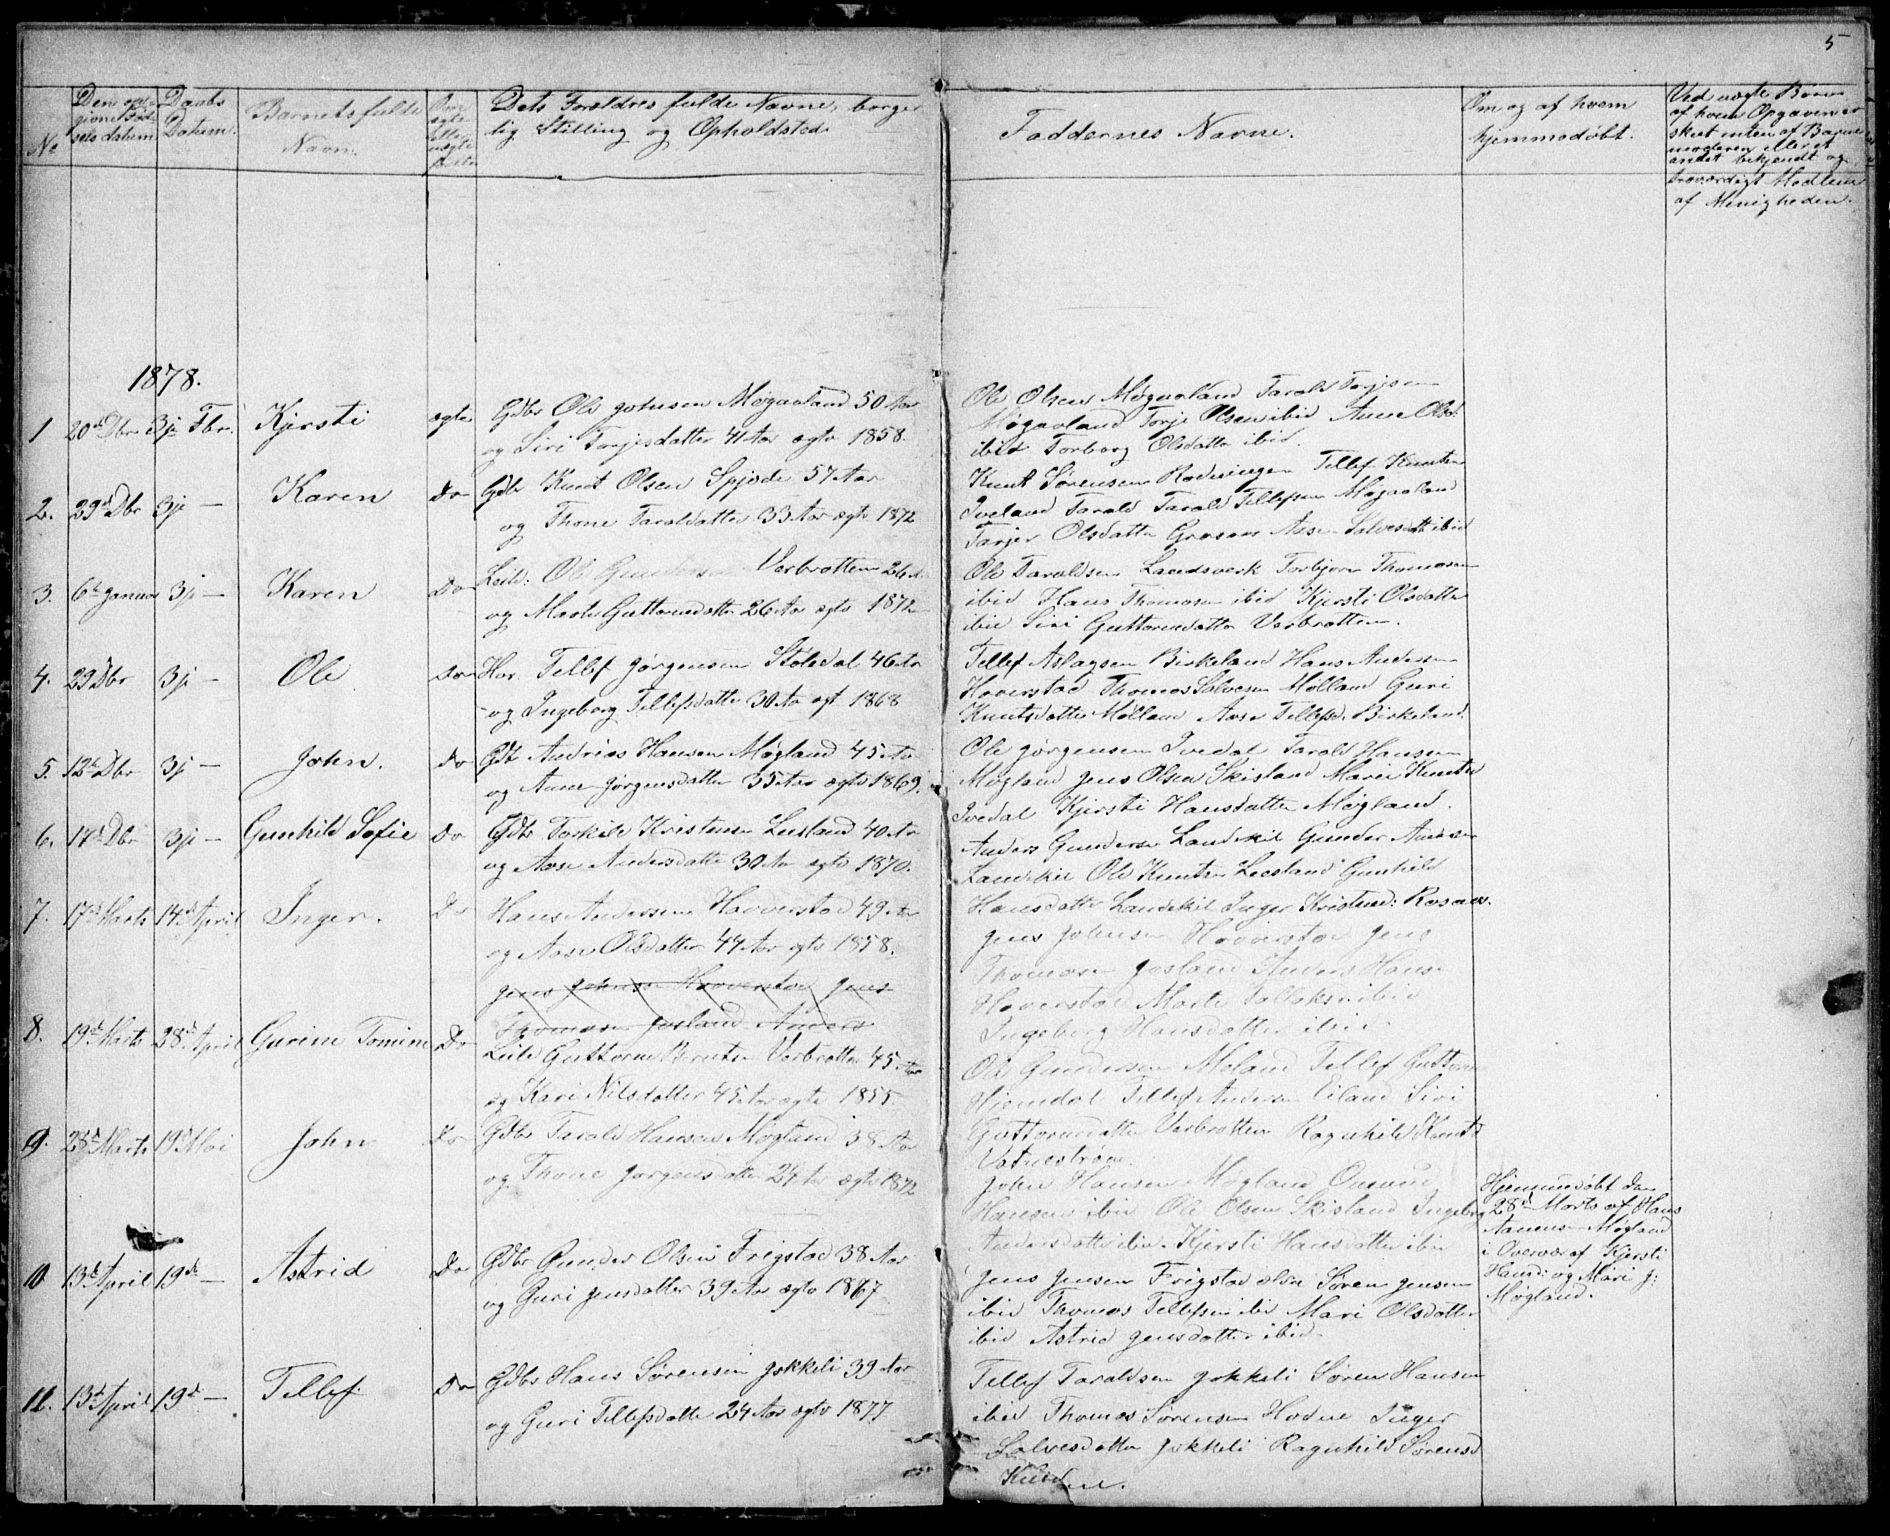 5
No
Den opgivne Fødselsdatum
Daabs Datum.
Barnets fulde Navn.
Om ægte eller uægte født
Dets Forældres fulde Navne, borger
lig Stilling og Opholdsted.
Faddernes Navne.
Om og af hvem
hjemmedøbt.
Ved uægte Børn
af hvem Opgaven er
skeet enten af Barne
moderen eller et
andet bekjendt og
troværdigt Medlem
af Menigheden.
1878.
1 20de Dbr 3je Fbr. Kjersti ægte Gdbr Ole Johnsen Møgaaland 50 Aar
og Siri Torjesdatter 41 Aar ægtv 1858.
Ole Olsen Møgaaland Tarald Torjesen
Møgaaland Torje Olsen ibid Anne Olsd.
ibid Torborg Olsdatter ibid.
2. 29de Dbr 3je — Karen Do Gdbr Knut Olsen Spjode 57 Aar
og Thone Taraldsdatter 33 Aar ægtv 1872
Knut Sørensen Tellef Knutsen
Iveland Tarald Tarald Tellefsen Møgaaland
Olsdatter Aase Salvesdatt ibid
3. 6te Januar 3je — Karen Do Leil: Ole Gundersen Verbrotten 26 A
og Marte Guttormsdatter 26 Aar ægtv 1872
Ole Taraldsen Landsverk Torbjørn Thomasen
ibid Hans Thomasen ibid Kjersti Olsdatter
ibid Siri Guttormsdatter Verbrotten.
4. 29 Dbr 3je — Ole Do Hør. Tellef Jørgensen Støledal 46 Aar
og Ingeborg Tellefsdatter 30 Aar ægt 1868
Tellef Aslagsen Birkeland Hans Andersen
Hoverstad Thomas Salvesen Mølland Guri
Knutsdatter Mølland Aase Tellefsd. Birkeland.
5. 12te Dbr 3je — John. Do Gdb Andreas Hansen Møgland 45 Aar
og Anne Jørgensdatter 35 Aar ægtv 1869.
Ole Jørgensen Ivedal Tarald Hansen
Møgland Jens Olsen Skisland Maren Knutsd
Ivedal Kjersti Hansdatter Møgland.
6. 14de Dbr 3je — Gunhild Sofie Do Gdbr Torkild Kristensen Leesland 40 Aar
og Aase Andersdatter 30 Aar ægtv 1870.
Anders Gundersen Landskil Gunder Andersen
Landskil Ole Knutsen Leesland Gunhild
Hansdatter Landskil Inger Kristensd: Rosaas.
7. 17de Marts 14de April Inger. Do Hans Andersen Hoverstad 49 Aar
og Aase Olsdatter 44 Aar ægtv 1858.
Jens Johnsen Hoverstad Jens
Thomasen Josland Anders
Jens Johnsen Hoverstad Jens
Thomasen Josland Anders Hansen
Hoverstad Marte Tallaksen ibid
Ingeborg Hansdatter ibid
8. 19de Marts 28de April Gurine Tomine Do Leil Guttorm Berntsen Verbrotten 45 Aar
og Kari Nilsdatter 45 Aar ægtv 1855.
Ole Gundersen Moland Tellef Guttormsen
Hjemdal Tellef Andersen Eiland Siri
Guttormsdatter Verbrotten Ragnhild Knutsd
Vatnestrøm.
9. 28de Marts 19de Mai John Do Gdbr Tarald Hansen Møgland 38 Aar
og Thone Jørgensdatter 24 Aar ægtv 1872
John Hansen Møgland Omund
Hansen ibid Ole Olsen Skisland Ingeborg
Andersdatter ibid. Kjersti Hansdatter ibid
Hjemmedøbt den
28de Marts af Hans
Møgland
i Overvær af Kjersti
Hansd: og Mari J:
Møgland.
10 13de April 19de — Astrid Do Gdbr Gunder Olsen Frigstad 38 Aar
og Guri Jensdatter 39 Aar ægtv 1867
Jens Jensen Frigstad Søren Jensen
ibid Thomas Tellefsen ibid Mari Olsdatter
ibid Astrid Jensdatter ibid.
11. 13de April 19de — Tellef Do Gdbr Hans Sørensen Jokkeli 39 Aar
og Guri Tellefsdatter 24 Aar ægtv 1877
Tellef Taraldsen Jokkeli Søren Hansen
ibid Thomas Sørensen Hodne Inger
Salvesdatter Jokkeli Ragnhild Sørensd